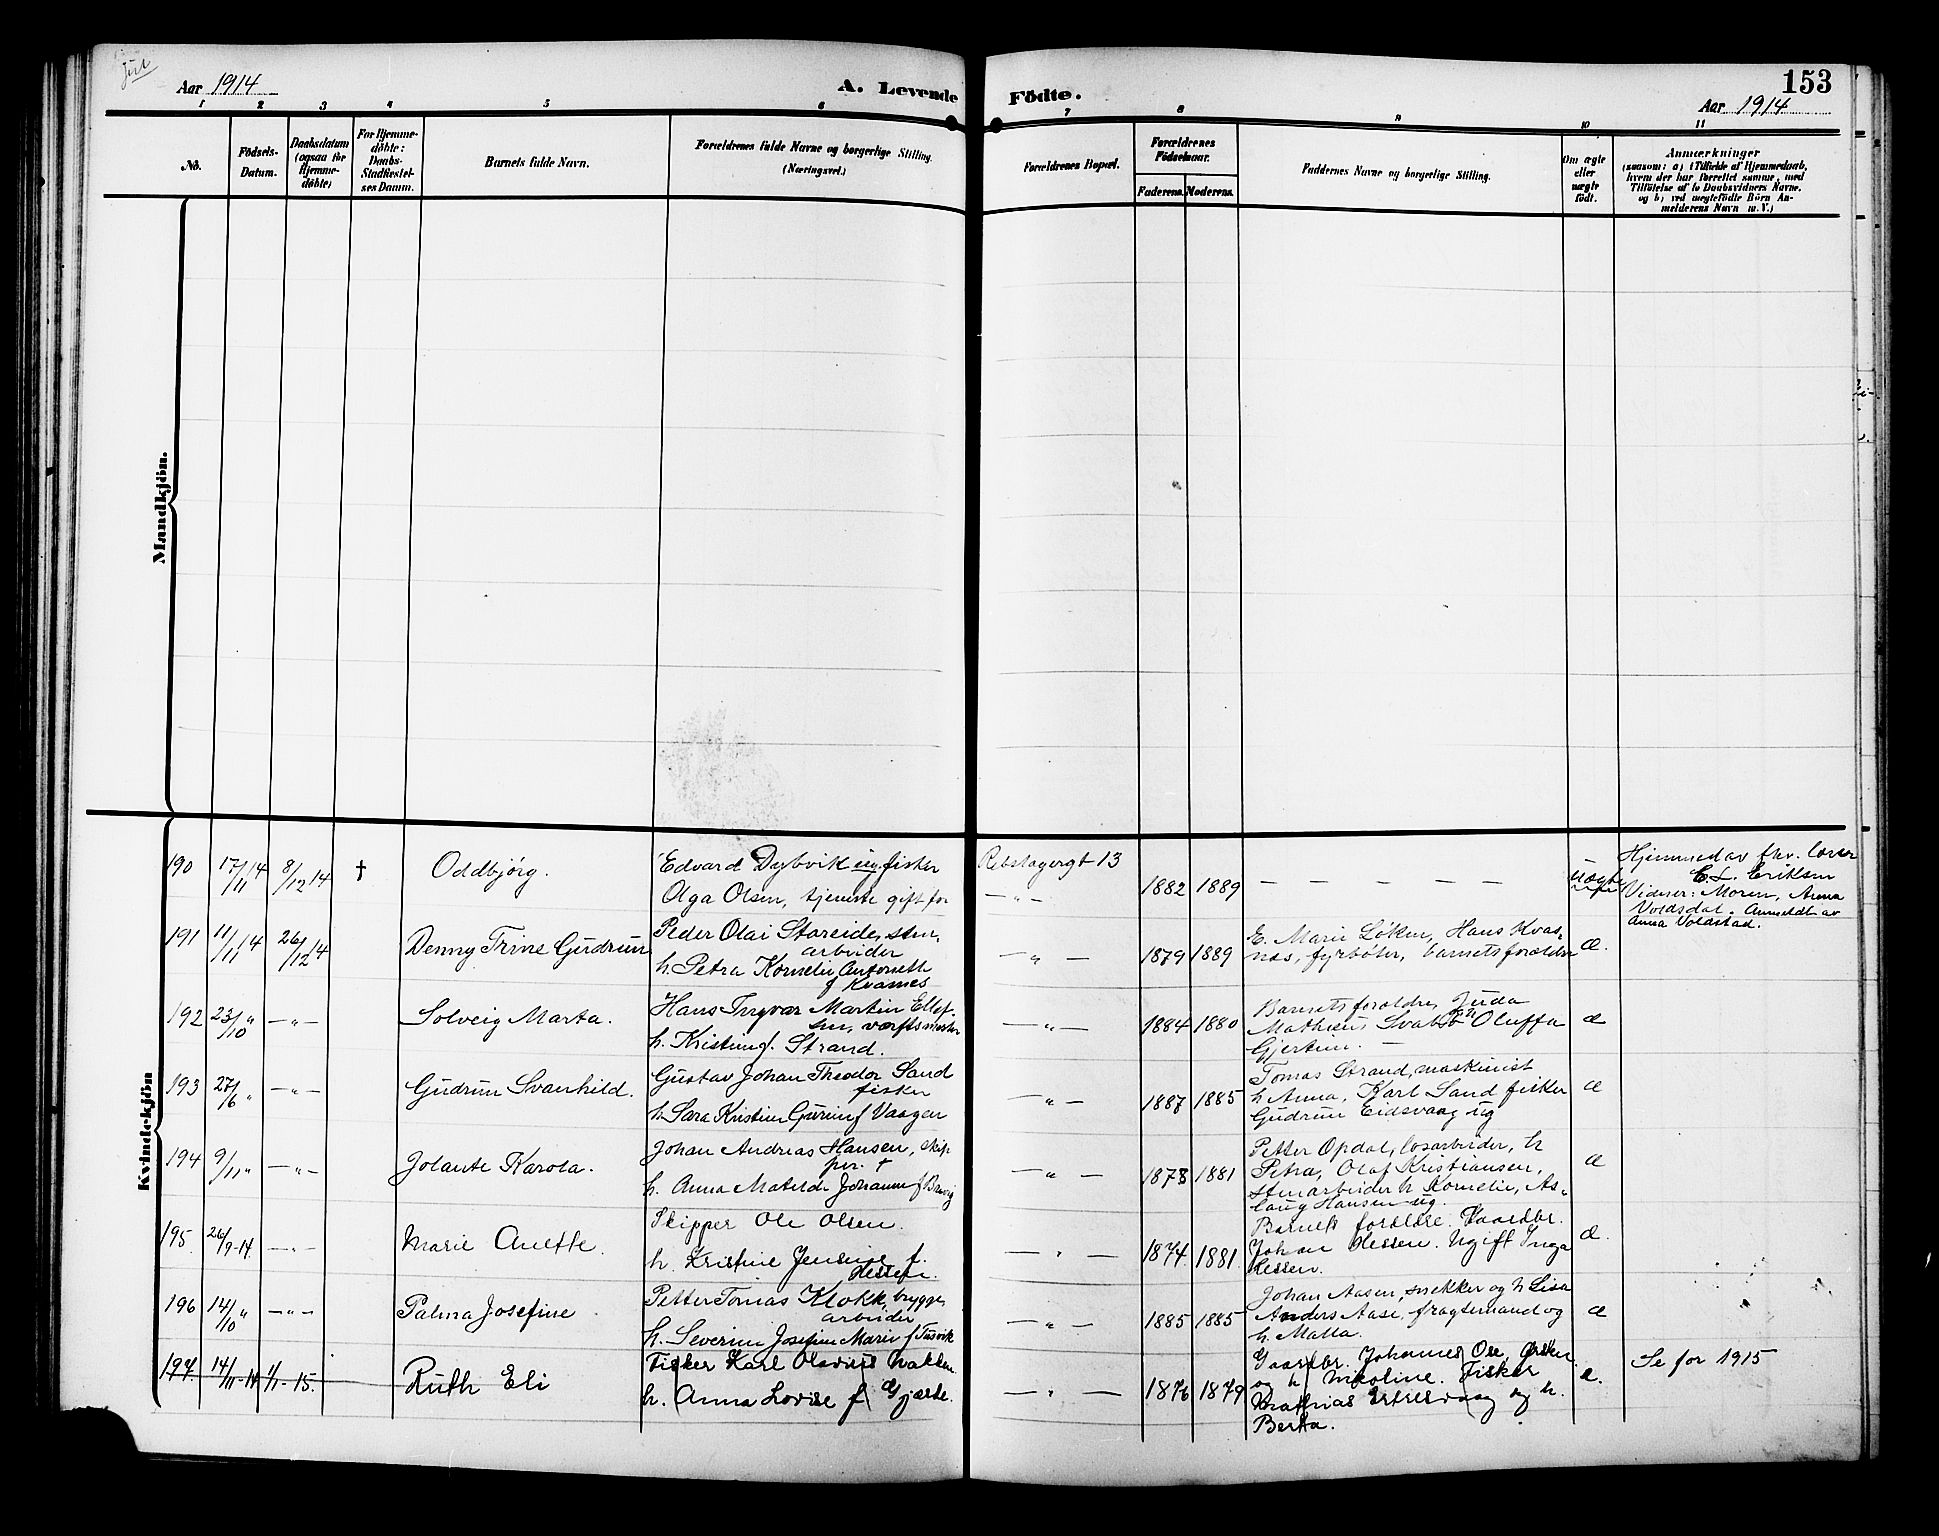 Aar 1914
A. Levende
Födte.
153
Aar 1914
1 2 3 4 5 6 7 8 9 10 11
No.
Födsels-
Datum.
Daabsdatum
(ogsaa for
Hjemme-
döbte)
For Hjemme-
döbte:
Daabs-
Stadfæstel-
ses Datum.
Barnets fulde Navn.
Forældrenes fulde Navne og borgerlige Stilling.
(Næringsvei.)
Forældrenes Bopæl.
Forældrenes
Födselsaar.
Faderens. Moderens.
Faddernes Navne og borgerlige Stilling.
Om ægte
eller
uægte
födt.
Anmærkninger
(saasom: a) i Tilfælde af Hjemmedaab,
hvem der har forrettet samme, med
Tilföielse af to Daabsvidners Navne,
og b) ved uægtefödte Börn An-
melderens Navn m. V.)
Mandkjön.
Kvindekjön
190 17/11 14 8/12 14 † Oddbjörg.
Edvard Dybvik ug fisker
Olga Olsen, tjeneste gift for
Rebslagergt 13
— " —
1882 1889 — — — — — uægte
Hjemmed av fhv. lærer
E. L. Eriksen
Vidner: Moren, Anna
Voldsdal. Anmeldt av
Anna Voldstad.
191 11/11 14 26/12 14 Denny Trine Gudrun
Peder Olai Stareide, sten,
arbeider
h. Petra Kornelie Antonette
f Kvasnes
— " — 1879 1889
E. Marie Løken, Hans Kvas-
nes, fyrbøter, barnets forældre
æ.
192 23/10 " — " — Solveig Marta.
Hans Ingvar Martin Ellef-
sen, værftsmester
h. Kristine f. Strand.
— " — 1884 1880
Barnets forældre, Juda
Matheus Svabø Oluffa
Gjertsen. —
æ
193 27/6 " — " — Gudrun Svanhild.
Gustav Johan Theodor Sand
fisker
h. Sara Kristine Gurine f Vaagen
— " — 1887 1885
Tomas Strand, maskinist
h Anna, Karl Sand fisker
Gudrun Eidsvaag ug
æ
194 9/11 " — " — Jolante Karola.
Johan Andreas Hansen, skip
per. †
h. Anna Matilde Johanne f
— " — 1878 1881
Petter Opdal, losarbeider, h
Petra, Olaf Kristiansen,
stenarbeider h Kornelie, As-
laug Hansen ug.
æ
195 26/9-14. — " — Marie Anette.
Skipper Ole Olsen.
h. Kristine Jensine f.
Hessen.
— " — 1874. 1881.
Barnets forældre. Gaardbr.
Johan Hessen. Ugift Inga
Hessen.
æ.
196 14/10 " — " — Palma Josefine
Petter Tomas Klokk, brygge,
arbeider
h. Severine Josefine Marie f Tusvik
— " — 1885 1885
Johan Aasen, snekker og h Lisa
Anders Aase, fragtemand og
h. Malla.
æ
197 14/11-14 1/1-15. Ruth Eli
Fisker Karl Olavius Nakken
h. Anna Lovise f Gjærde.
— " — 1876 1879
Gaardbr. Johannes Ose, Ørsken.
og h Nikoline. Fisker
Mathias og h.
Berta.
æ.
Se for 1915